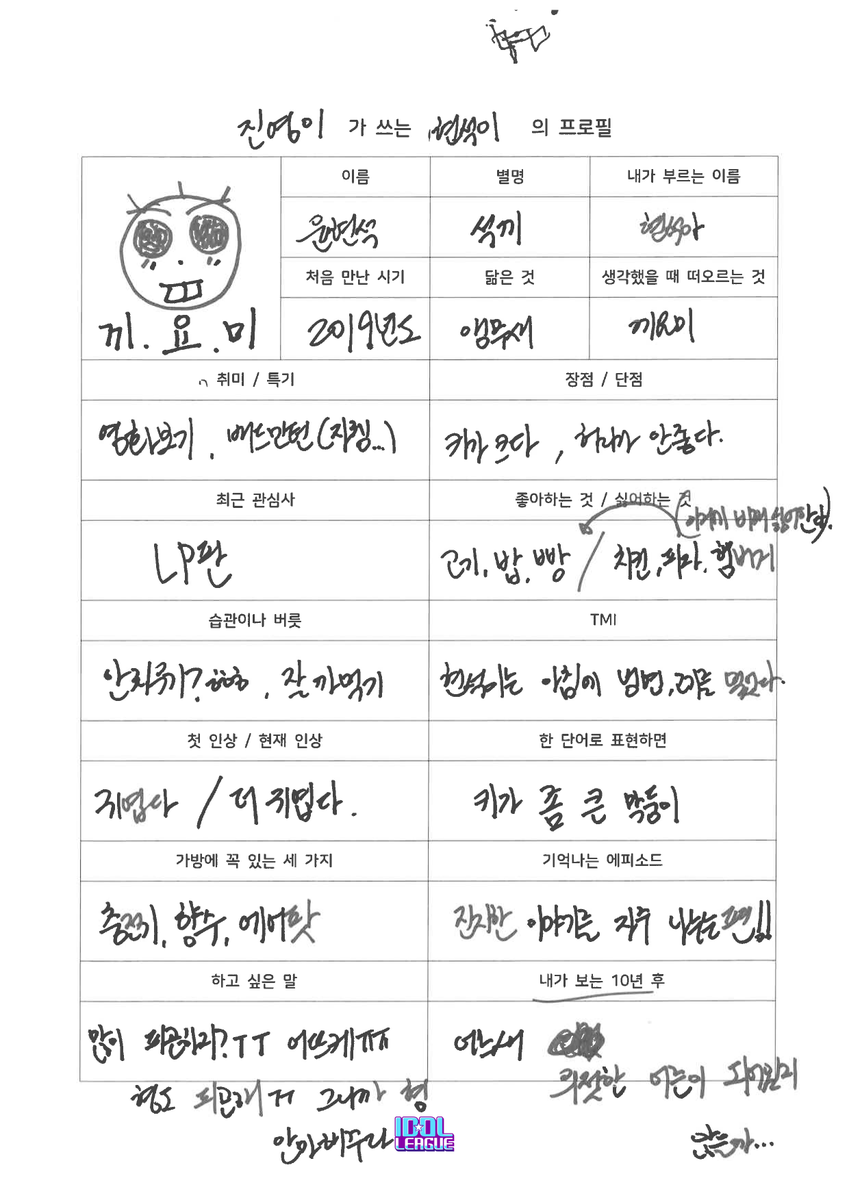 진영이 가 쓰는 현석이 의 프로필
이름 별명 내가 부르는 이름
윤현석 석끼 현석아
처음 만난 시기 닮은 것 생각했을 때 떠오르는 것
끼.요.미 2019년도 앵무새 끼요미
취미 / 특기 장점 / 단점
영화보기, 배드민턴(자칭...) 키가 크다, 허리가 안좋다.
최근 관심사 좋아하는 것 / 싫어하는 것
LP판 고기, 밥, 빵 / 치킨, 피자, 햄버거
습관이나 버릇 TMI
안치우기? ㅎㅎㅎ, 잘 까먹기 현석이는 아침에
첫 인상 / 현재 인상 한 단어로 표현하면
귀엽다 / 더 귀엽다. 키가 좀 큰 막둥이
가방에 꼭 있는 세 가지 기억나는 에피소드
충전기, 향수, 에어팟 진지한 이야기를 자주 나누는 편!!
하고 싶은 말 내가 보는 10년 후
많이 피곤하지? ㅜㅜ 어뜨케ㅠㅠ 어느새
형도 피곤해 져 그니까 형 뭐젓한 어른이 되어있지
안마해주라 않을까...
IDOL
LEAGUE